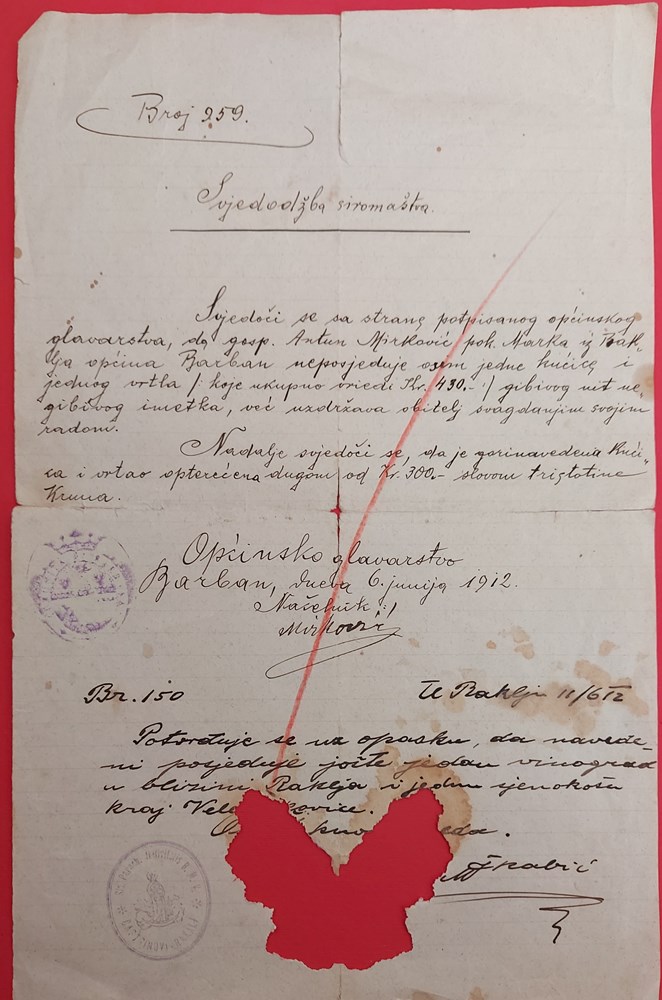 Broj 259.
Svjedodžba siromaštva.
Svjedoči se sa strane potpisanog općinskog
glavarstva, da gosp. Antun Mirković pok. Marka iz Rak-
lja općina Barban neposjeduje osim jedne kućice i
jednog vrtla /: koje ukupno vriedi Kr. 430.- :/ gibivog nit ne-
gibivog imetka, već uzdržava obitelj svagdanjim svojim
radom.
Nadalje svjedoči se, da je gorinavedena kući-
ca i vrtao opterećena dugom od Kr. 300.- slovom tristotine
Kruna.
Općinsko glavarstvo
Barban, dneva 6. junija 1912.
Načelnik :/
Mirković
Br. 150
U Raklju 11/6 12
Potvrđuje se uz opasku, da navede-
ni posjeduje jošte jedan vinograd
u blizini Raklja i jednu sjenokošu
kraj